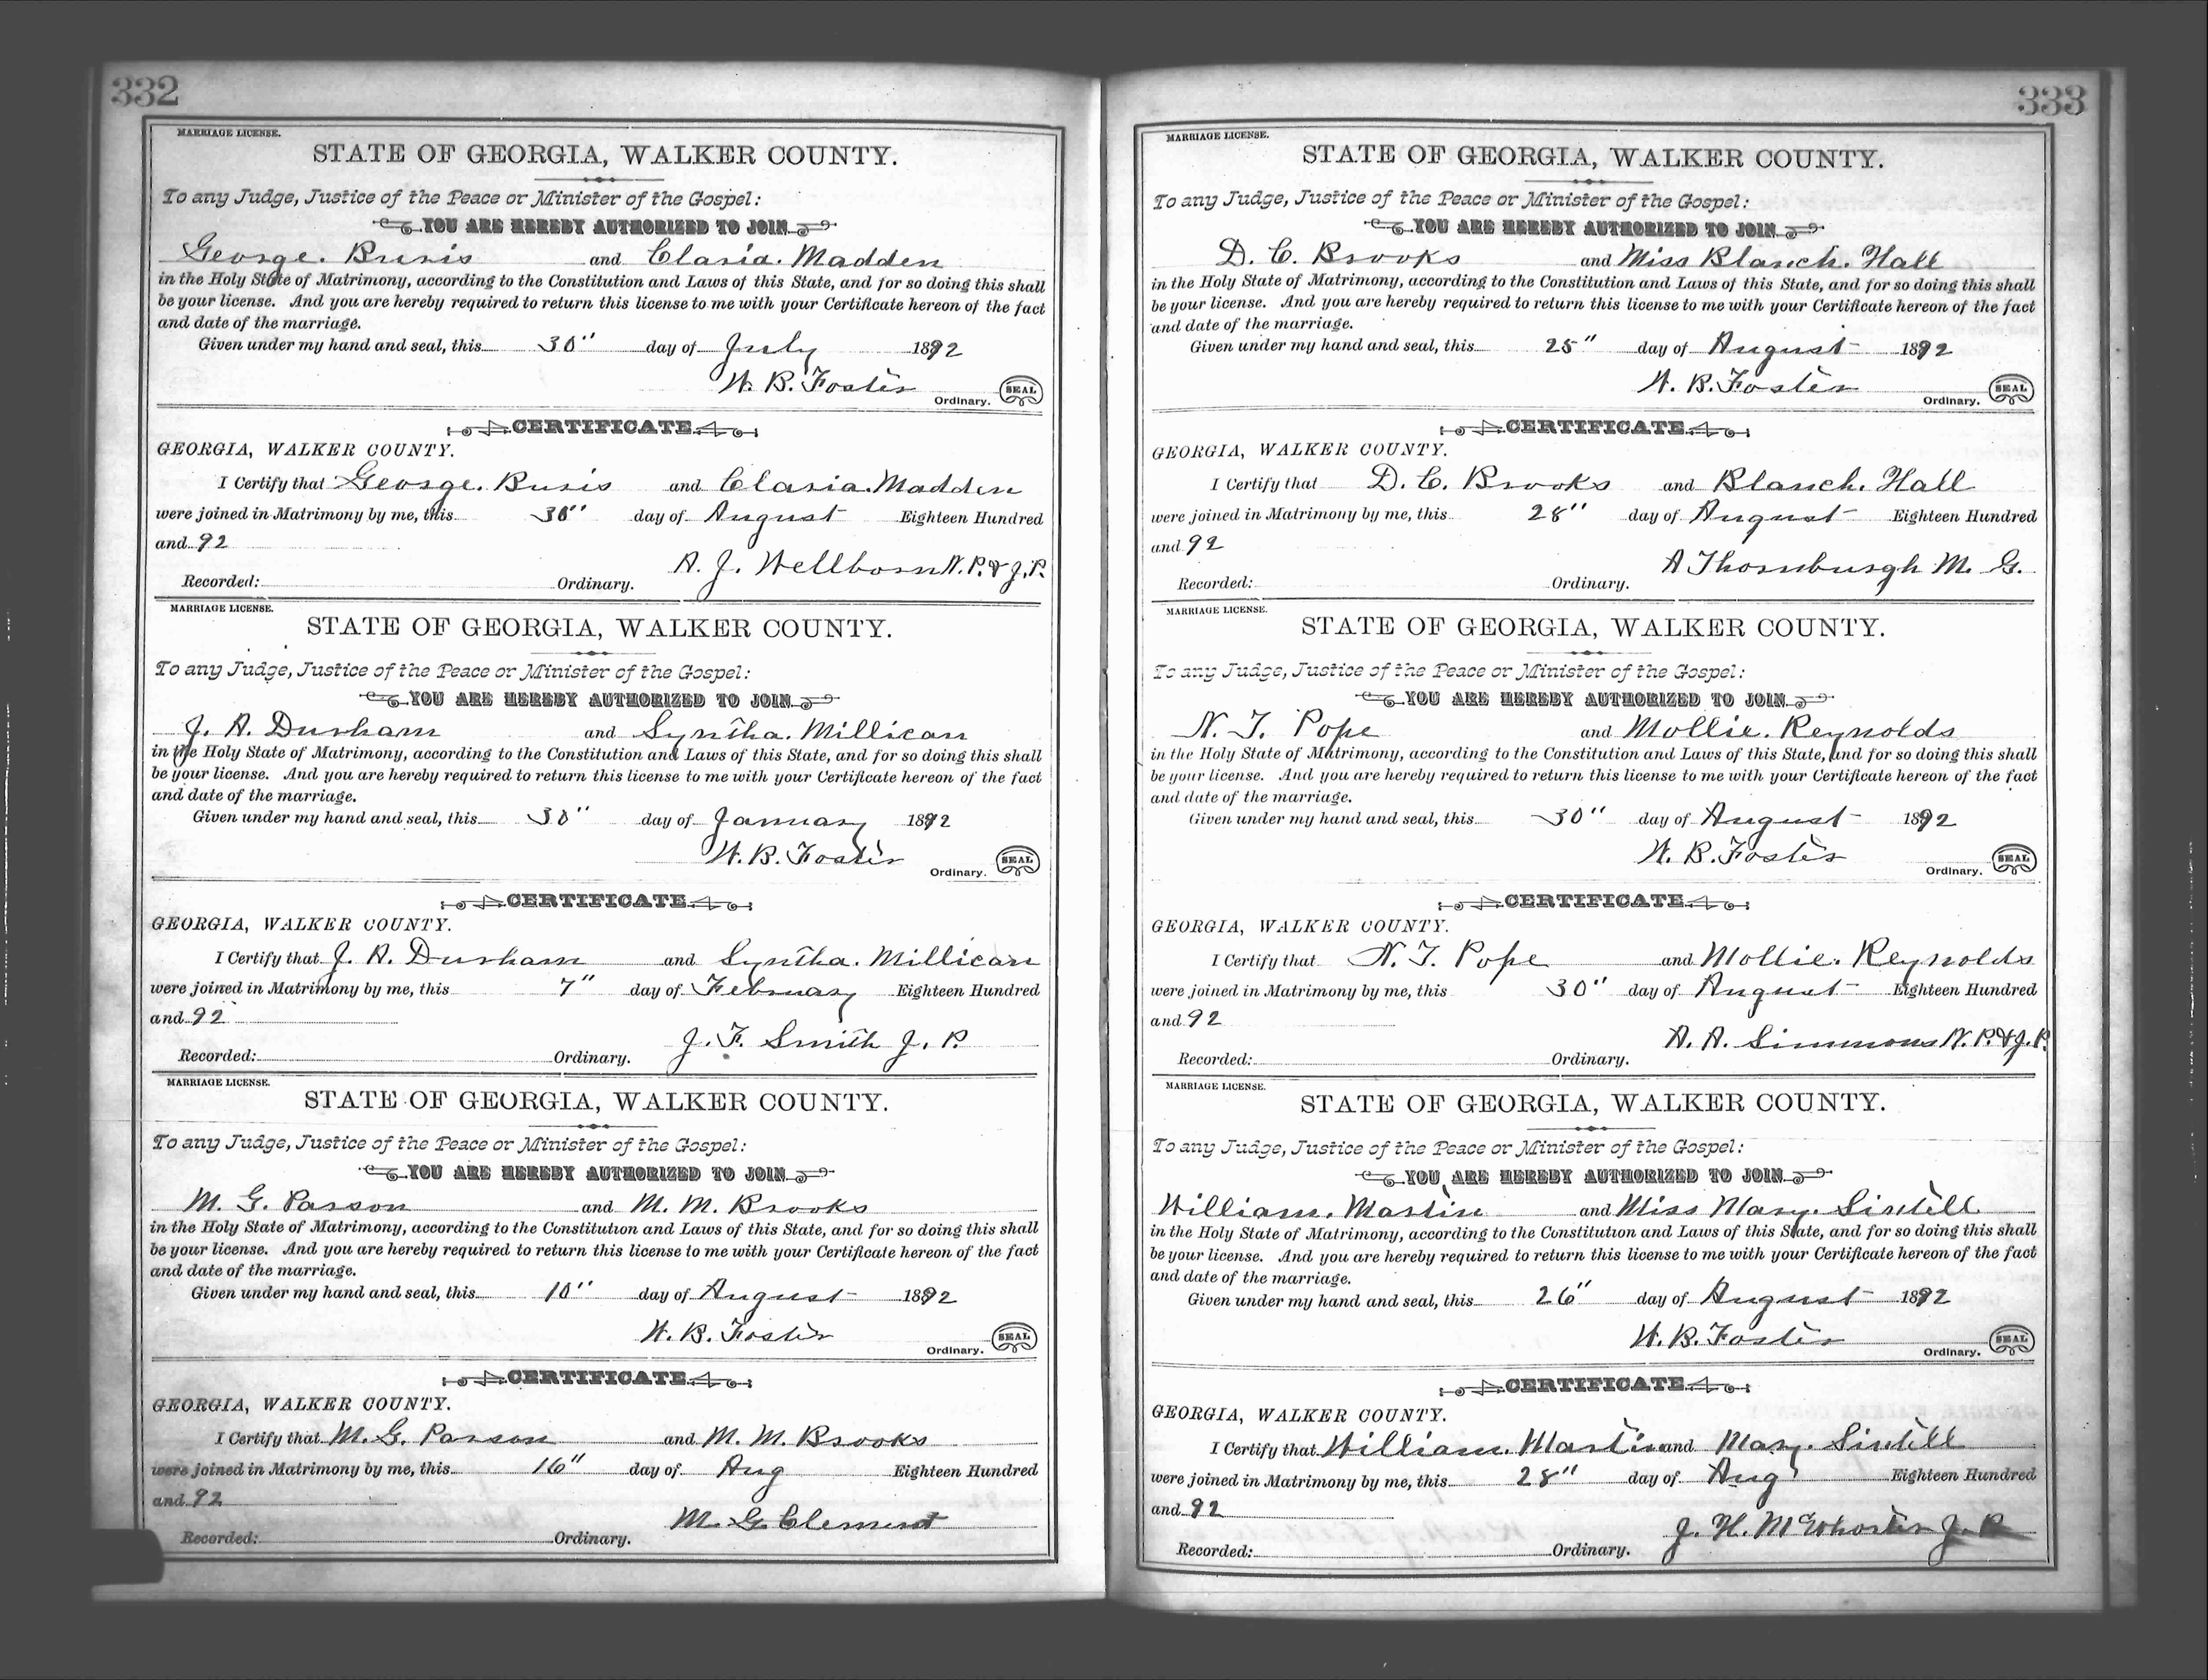 332
MARRIAGE LICENSE.
STATE OF GEORGIA, WALKER COUNTY.
To any Judge, Justice of the Peace or Minister of the Gospel:
YOU ARE HEREBY AUTHORIZED TO JOIN
George. Buris and Clasia. Madden
in the Holy State of Matrimony, according to the Constitution and Laws of this State, and for so doing this shall
be your license. And you are hereby required to return this license to me with your Certificate hereon of the fact
and date of the marriage.
Given under my hand and seal, this 30" day of July 1892
W. B. Foster
Ordinary. SEAL
CERTIFICATE
GEORGIA, WALKER COUNTY.
I Certify that George. Buris and Clasia. Madden
were joined in Matrimony by me, this 30" day of August Eighteen Hundred
and 92
A. J. Wellborn N. P. & J. P.
Recorded: Ordinary.
MARRIAGE LICENSE.
STATE OF GEORGIA, WALKER COUNTY.
To any Judge, Justice of the Peace or Minister of the Gospel:
YOU ARE HEREBY AUTHORIZED TO JOIN
J. A. Durham and Syntha. Millican
in the Holy State of Matrimony, according to the Constitution and Laws of this State, and for so doing this shall
be your license. And you are hereby required to return this license to me with your Certificate hereon of the fact
and date of the marriage.
Given under my hand and seal, this 30" day of January 1892
W. B. Foster
Ordinary. SEAL
CERTIFICATE
GEORGIA, WALKER COUNTY.
I Certify that J. A. Durham and Syntha. Millican
were joined in Matrimony by me, this 7" day of February Eighteen Hundred
and 92
J. F. Smith J. P.
Recorded: Ordinary.
MARRIAGE LICENSE.
STATE OF GEORGIA, WALKER COUNTY.
To any Judge, Justice of the Peace or Minister of the Gospel:
YOU ARE HEREBY AUTHORIZED TO JOIN
M. G. Parson and M. M. Brooks
in the Holy State of Matrimony, according to the Constitution and Laws of this State, and for so doing this shall
be your license. And you are hereby required to return this license to me with your Certificate hereon of the fact
and date of the marriage.
Given under my hand and seal, this 10" day of August 1892
W. B. Foster
Ordinary. SEAL
CERTIFICATE
GEORGIA, WALKER COUNTY.
I Certify that M. G. Parson and M. M. Brooks
were joined in Matrimony by me, this 16" day of Aug Eighteen Hundred
and 92
M. G. Clement
Recorded: Ordinary.
333
MARRIAGE LICENSE.
STATE OF GEORGIA, WALKER COUNTY.
To any Judge, Justice of the Peace or Minister of the Gospel:
YOU ARE HEREBY AUTHORIZED TO JOIN
D. C. Brooks and Miss Blanch. Hall
in the Holy State of Matrimony, according to the Constitution and Laws of this State, and for so doing this shall
be your license. And you are hereby required to return this license to me with your Certificate hereon of the fact
and date of the marriage.
Given under my hand and seal, this 25" day of August 1892
W. B. Foster
Ordinary. SEAL
CERTIFICATE
GEORGIA, WALKER COUNTY.
I Certify that D. C. Brooks and Blanch. Hall
were joined in Matrimony by me, this 28" day of August Eighteen Hundred
and 92
A Thornburgh M. G.
Recorded: Ordinary.
MARRIAGE LICENSE.
STATE OF GEORGIA, WALKER COUNTY.
To any Judge, Justice of the Peace or Minister of the Gospel:
YOU ARE HEREBY AUTHORIZED TO JOIN
N. T. Pope and Mollie. Reynolds
in the Holy State of Matrimony, according to the Constitution and Laws of this State, and for so doing this shall
be your license. And you are hereby required to return this license to me with your Certificate hereon of the fact
and date of the marriage.
Given under my hand and seal, this 30" day of August 1892
W. B. Foster
Ordinary. SEAL
CERTIFICATE
GEORGIA, WALKER COUNTY.
I Certify that N. T. Pope and Mollie. Reynolds
were joined in Matrimony by me, this 30" day of August Eighteen Hundred
and 92
A. A. Simmons N. P. & J. P.
Recorded: Ordinary.
MARRIAGE LICENSE.
STATE OF GEORGIA, WALKER COUNTY.
To any Judge, Justice of the Peace or Minister of the Gospel:
YOU ARE HEREBY AUTHORIZED TO JOIN
William. Martin and Miss Mary. Sintell
in the Holy State of Matrimony, according to the Constitution and Laws of this State, and for so doing this shall
be your license. And you are hereby required to return this license to me with your Certificate hereon of the fact
and date of the marriage.
Given under my hand and seal, this 26" day of August 1892
W. B. Foster
Ordinary. SEAL
CERTIFICATE
GEORGIA, WALKER COUNTY.
I Certify that William. Martin and Mary. Sintell
were joined in Matrimony by me, this 28" day of Aug Eighteen Hundred
and 92
J. H. McWhorter J. P.
Recorded: Ordinary.